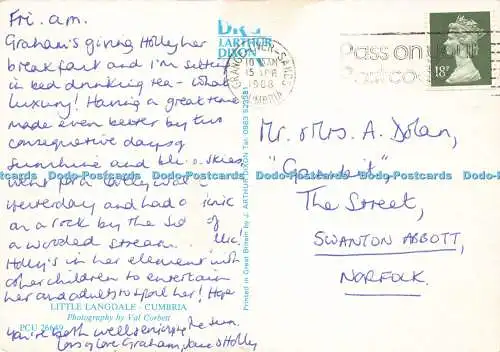 Fri. a.m.
Graham's giving Holley her
breakfast and I'm sitting
in bed drinking tea - what
luxury! Having a great time
made even better by two
consequetive days of
Sunshine and blue skies.
Went for a lovely walk
yesterday and had a picnic
on a rock by the side of
a wooded stream.
Holly's in her element with
other children to entertain
her and adults to spoil her! Hope
you're both well & enjoying the sun.
Lots of love Graham, Jane & Holly
LITTLE LANGDALE - CUMBRIA
Photography by Val Corbett
PCU 26649
LARTHUR
DIXON
Printed in Great Britain by J. ARTHUR DIXON Tel: 0983 523381
GRANGE-OVER-SANDS
10 AM
15 APR
1988
CUMBRIA
Pass on your
Postcode
18P
Mr. & Mrs. A. Dolan,
The Street,
SWANTON ABBOTT,
NORFOLK.
dodo-Postcards dodo-Postcards dodo-Postcards dodo-Postcards dodo-Postcards